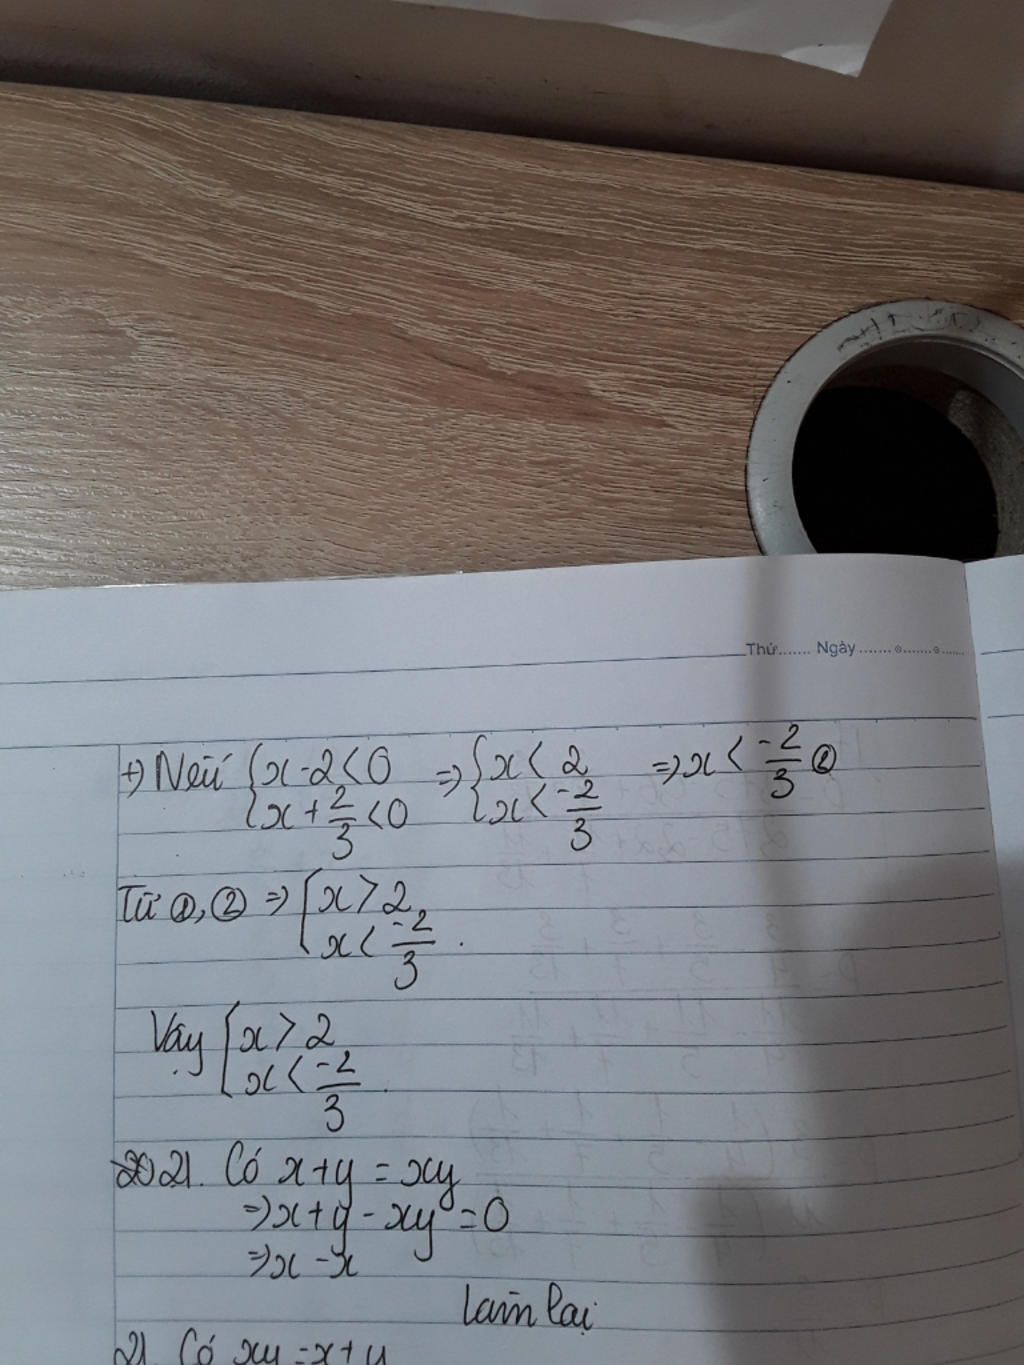 Thứ....... Ngày .......
+) Nếu { x - 2 < 0 => { x < 2 => x < -2/3 ②
{ x + 2/3 < 0 { x < -2/3
Từ ①, ② => [ x > 2
[ x < -2/3 .
Vậy [ x > 2
[ x < -2/3 .
21. Có x + y = xy
=> x + y - xy = 0
=> x - x
Làm lại
21. Có xy = x + y